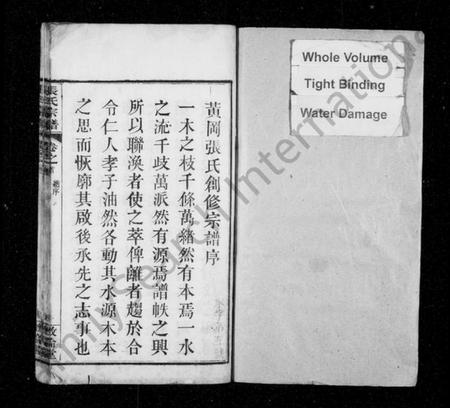 黃岡張氏創修宗譜序
一木之枝千條萬緒然有本焉一水
之流千歧萬派然有源焉譜帙之興
所以聯渙者使之萃俾離者趨於合
令仁人孝子油然各動其水源木本
之思而恢廓其啟後承先之志事也
張氏宗譜
卷之首
Whole Volume
Tight Binding
Water Damage